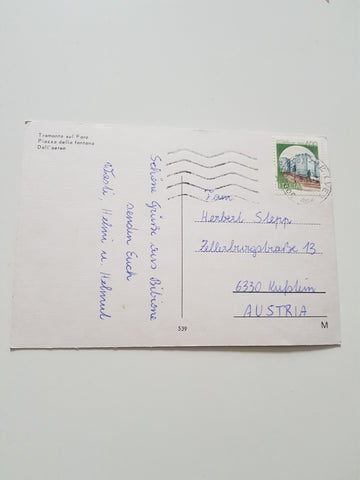 Tramonto sul Faro
Piazza della fontana
Dall'aereo
Schöne Grüße aus Bibione
senden Euch
Helmi u. Helmut
ITALIA
Fam.
Herbert Stepp
Zellerburgstraße 13
6330 Kufstein
AUSTRIA
539
M